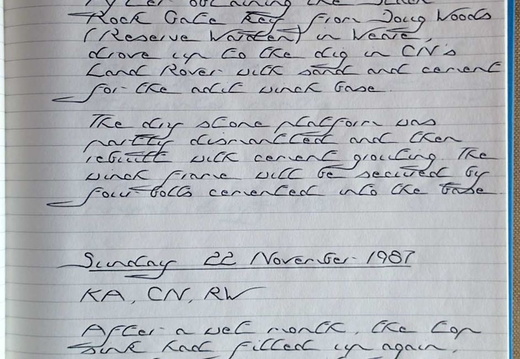 After obtaining the
Rock Gate Key from Doug Woods
(Reserve Warden) in Neave,
drove up to the dig in CN's
Land Rover with sand and cement
for the adit winch base.
The dry stone platform was
partly dismantled and then
rebuilt with cement grouting. The
winch frame will be secured by
four bolts cemented into the base.
Sunday 22 November 1987
KA, CN, RW
After a wet month, the top
sink had filled up again,